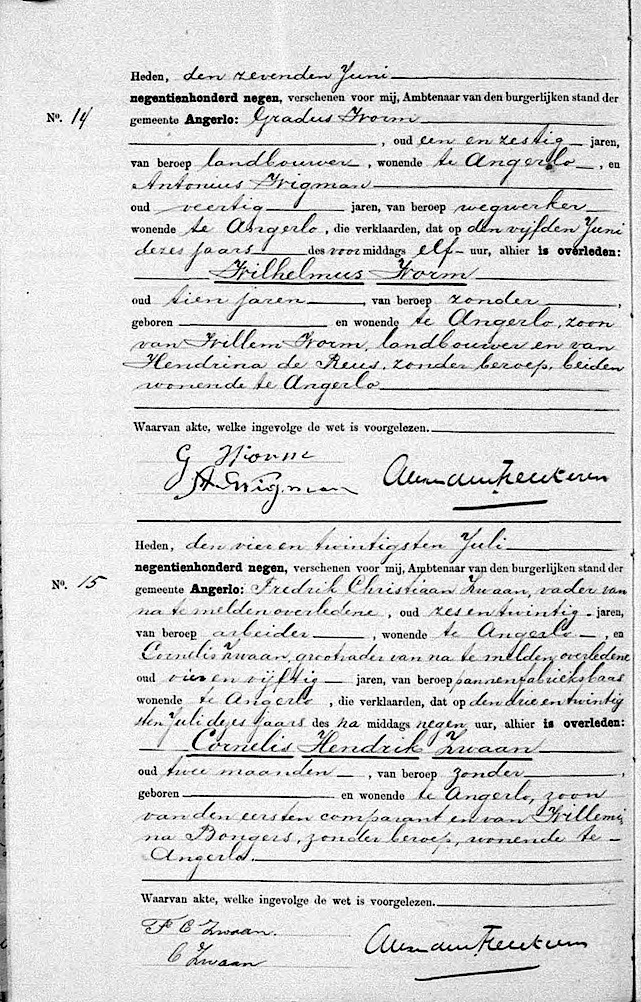 Heden, den zevenden Juni
negentienhonderd negen, verschenen voor mij, Ambtenaar van den burgerlijken stand der
No. 14 gemeente Angerlo: Gradus Worm
, oud een en zestig jaren,
van beroep landbouwer, wonende te Angerlo, en
Antonius Wigman
oud veertig jaren, van beroep wegwerker
wonende te Angerlo, die verklaarden, dat op den vijfden Juni
dezes jaars des voormiddags elf uur, alhier is overleden:
Wilhelmus Worm
oud tien jaren, van beroep zonder,
geboren en wonende te Angerlo, zoon
van Willem Worm, landbouwer en van
Hendrina de Reus, zonder beroep, beiden
wonende te Angerlo
Waarvan akte, welke ingevolge de wet is voorgelezen.
G Worm
A Wigman
Heden, den vier en twintigsten Juli
negentienhonderd negen, verschenen voor mij, Ambtenaar van den burgerlijken stand der
No. 15 gemeente Angerlo: Fredrik Christiaan Zwaan, vader van
na te melden overledene, oud zes en twintig jaren,
van beroep arbeider, wonende te Angerlo, en
Cornelis Zwaan, grootvader van na te melden overledene
oud vier en vijftig jaren, van beroep pannenfabrieksbaas
wonende te Angerlo, die verklaarden, dat op den drie en twintig
sten Juli dezes jaars des na middags negen uur, alhier is overleden:
Cornelis Hendrik Zwaan
oud twee maanden, van beroep zonder,
geboren en wonende te Angerlo, zoon
van den eersten comparant en van Willemi,
na Bongers, zonder beroep, wonende te
Angerlo.
Waarvan akte, welke ingevolge de wet is voorgelezen.
F C Zwaan.
C Zwaan